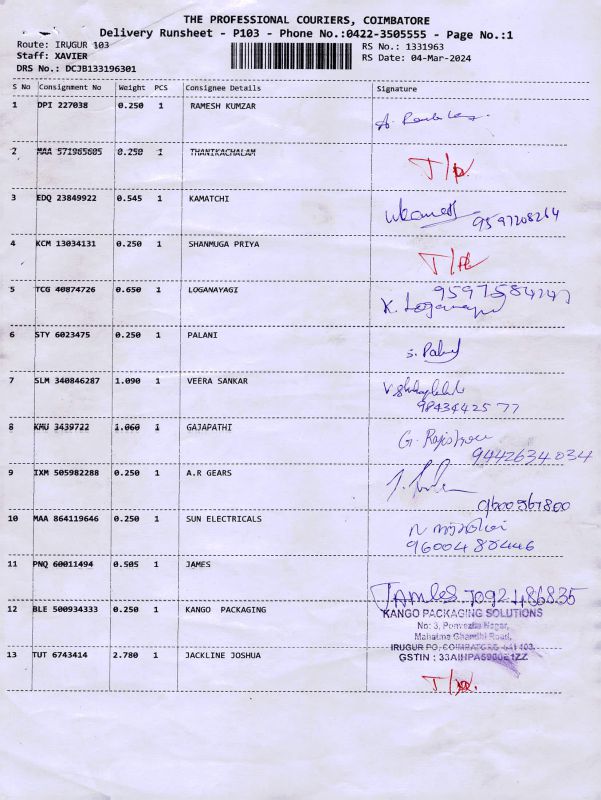 THE PROFESSIONAL COURIERS, COIMBATORE
Delivery Runsheet - P103 - Phone No.:0422-3505555 - Page No.:1
Route: IRUGUR 103
RS No.: 1331963
Staff: XAVIER
RS Date: 04-Mar-2024
DRS No.: DCJB133196301
S No Consignment No Weight PCS Consignee Details Signature
1 DPI 227038 0.250 1 RAMESH KUMZAR
2 MAA 571965605 0.250 1 THANIKACHALAM
3 EDQ 23849922 0.545 1 KAMATCHI
9597208264
4 KCM 13034131 0.250 1 SHANMUGA PRIYA
5 TCG 40874726 0.650 1 LOGANAYAGI
K. Loganayagi
6 STY 6023475 0.250 1 PALANI
S. Palani
7 SLM 340846287 1.090 1 VEERA SANKAR
9843442577
8 KMU 3439722 1.060 1 GAJAPATHI
9442634034
9 IXM 505982288 0.250 1 A.R GEARS
10 MAA 864119646 0.250 1 SUN ELECTRICALS
11 PNQ 60011494 0.505 1 JAMES
JAMES 7092486835
12 BLE 500934333 0.250 1 KANGO PACKAGING
KANGO PACKAGING SOLUTIONS
No: 3,
Mahatma Ghandhi Road,
IRUGUR PO, COIMBATORE - 641 103.
GSTIN :
13 TUT 6743414 2.780 1 JACKLINE JOSHUA